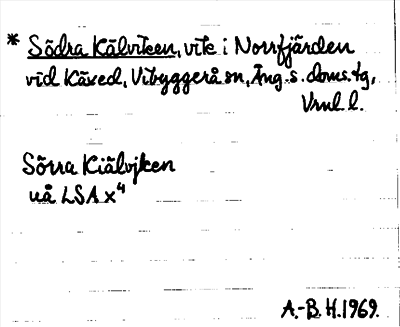 * Södra Kälviken, vik i Norrfjärden
vid Käxed, Vibyggerå sn, Ång. s. doms. tg,
Vrnl. l.
Sörra Kiälvjken
uå LSA x⁴
A.-B. H. 1969.